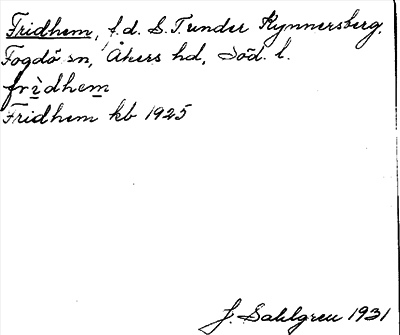 Fridhem, f.d. S.T. under Kynnersberg,
Fogdö sn, Åkers hd, Söd. l.
frìdhem
Fridhem kb 1925
J. Sahlgren 1931